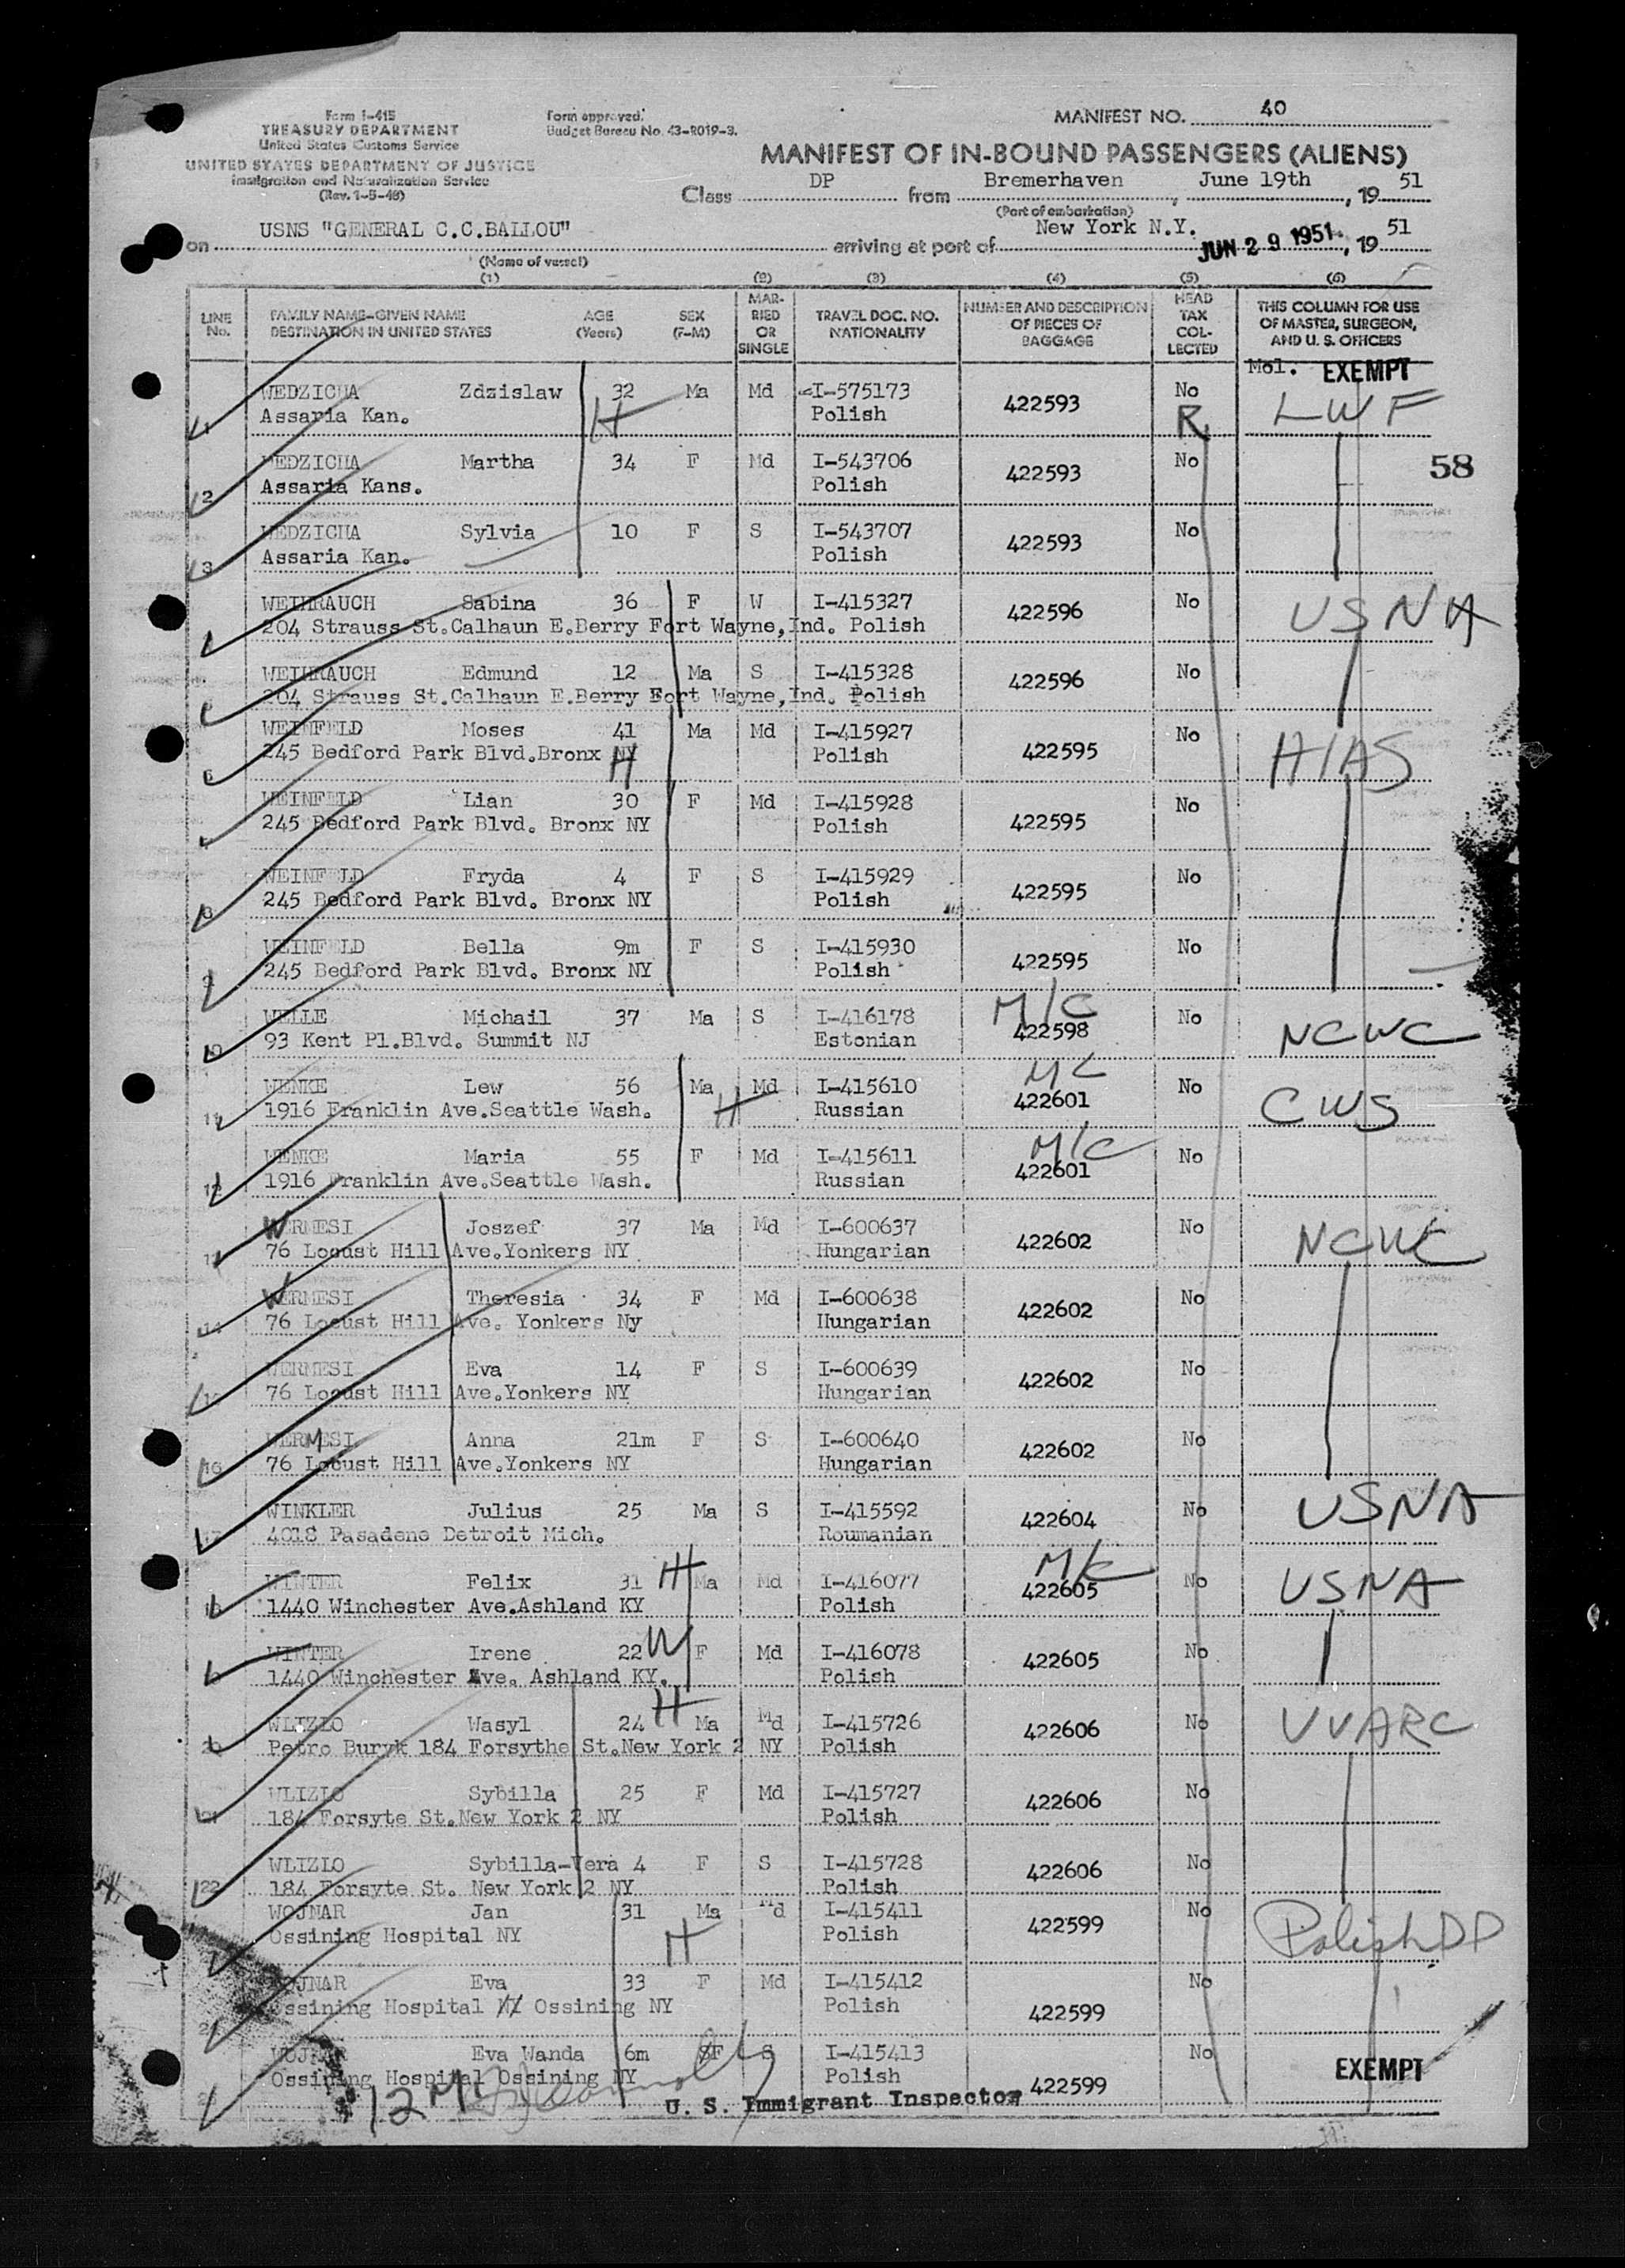 Form I-415
TREASURY DEPARTMENT
United States Customs Service
UNITED STATES DEPARTMENT OF JUSTICE
Immigration and Naturalization Service
(Rev. 1-5-48)
Form approved.
Budget Bureau No. 43-R019-3.
MANIFEST NO. 40
MANIFEST OF IN-BOUND PASSENGERS (ALIENS)
Class DP from Bremerhaven, June 19th, 19 51
(Port of embarkation)
on USNS "GENERAL C.C.BALLOU" arriving at port of New York N.Y. JUN 29 1951, 19 51
(Name of vessel)
(1) (2) (3) (4) (5) (6)
LINE No. FAMILY NAME-GIVEN NAME DESTINATION IN UNITED STATES AGE (Years) SEX (F-M) MARRIED OR SINGLE TRAVEL DOC. NO. NATIONALITY NUMBER AND DESCRIPTION OF PIECES OF BAGGAGE HEAD TAX COLLECTED THIS COLUMN FOR USE OF MASTER, SURGEON, AND U. S. OFFICERS
Mol. EXEMPT
1 WEDZICHA Zdzislaw 32 Ma Md I-575173 422593 No LWF
Assaria Kan. H Polish R
2 WEDZICHA Martha 34 F Md I-543706 422593 No 58
Assaria Kans. Polish
3 WEDZICHA Sylvia 10 F S I-543707 422593 No
Assaria Kan. Polish
WEIHRAUCH Sabina 36 F W I-415327 422596 No USNA
204 Strauss St.Calhaun E.Berry Fort Wayne,Ind. Polish
WEIHRAUCH Edmund 12 Ma S I-415328 422596 No
204 Strauss St.Calhaun E.Berry Fort Wayne,Ind. Polish
6 WEINFELD Moses 41 Ma Md I-415927 422595 No HIAS
245 Bedford Park Blvd.Bronx NY H Polish
WEINFELD Lian 30 F Md I-415928 422595 No
245 Bedford Park Blvd. Bronx NY Polish
8 WEINFELD Fryda 4 F S I-415929 422595 No
245 Bedford Park Blvd. Bronx NY Polish
9 WEINFELD Bella 9m F S I-415930 422595 No
245 Bedford Park Blvd. Bronx NY Polish
10 WELLE Michail 37 Ma S I-416178 M/C 422598 No NCWC
93 Kent Pl.Blvd. Summit NJ Estonian
11 WENKE Lew 56 Ma Md I-415610 MC 422601 No CWS
1916 Franklin Ave.Seattle Wash. H Russian
12 WENKE Maria 55 F Md I-415611 M/C 422601 No
1916 Franklin Ave.Seattle Wash. Russian
13 WERMESI Joszef 37 Ma Md I-600637 422602 No NCWC
76 Locust Hill Ave.Yonkers NY Hungarian
14 WERMESI Theresia 34 F Md I-600638 422602 No
76 Locust Hill Ave. Yonkers Ny Hungarian
15 WERMESI Eva 14 F S I-600639 422602 No
76 Locust Hill Ave.Yonkers NY Hungarian
16 WERMESI Anna 21m F S I-600640 422602 No
76 Locust Hill Ave.Yonkers NY Hungarian
17 WINKLER Julius 25 Ma S I-415592 422604 No USNA
4018 Pasadeno Detroit Mich. Roumanian
18 WINTER Felix 31 H Ma Md I-416077 M/C 422605 No USNA
1440 Winchester Ave.Ashland KY Polish
19 WINTER Irene 22 W F Md I-416078 422605 No
1440 Winchester Ave. Ashland KY. Polish
20 WLIZLO Wasyl 24 H Ma Md I-415726 422606 No UUARC
Petro Buryk 184 Forsythe St.New York 2 NY Polish
21 WLIZLO Sybilla 25 F Md I-415727 422606 No
184 Forsyte St.New York 2 NY Polish
22 WLIZLO Sybilla-Vera 4 F S I-415728 422606 No
184 Forsyte St. New York 2 NY Polish
WOJNAR Jan 31 Ma Md I-415411 422599 No Polish DP
Ossining Hospital NY H Polish
WOJNAR Eva 33 F Md I-415412 422599 No
Ossining Hospital Ossining NY Polish
WOJNAR Eva Wanda 6m F S I-415413 422599 No EXEMPT
Ossining Hospital Ossining NY Polish
U. S. Immigrant Inspector